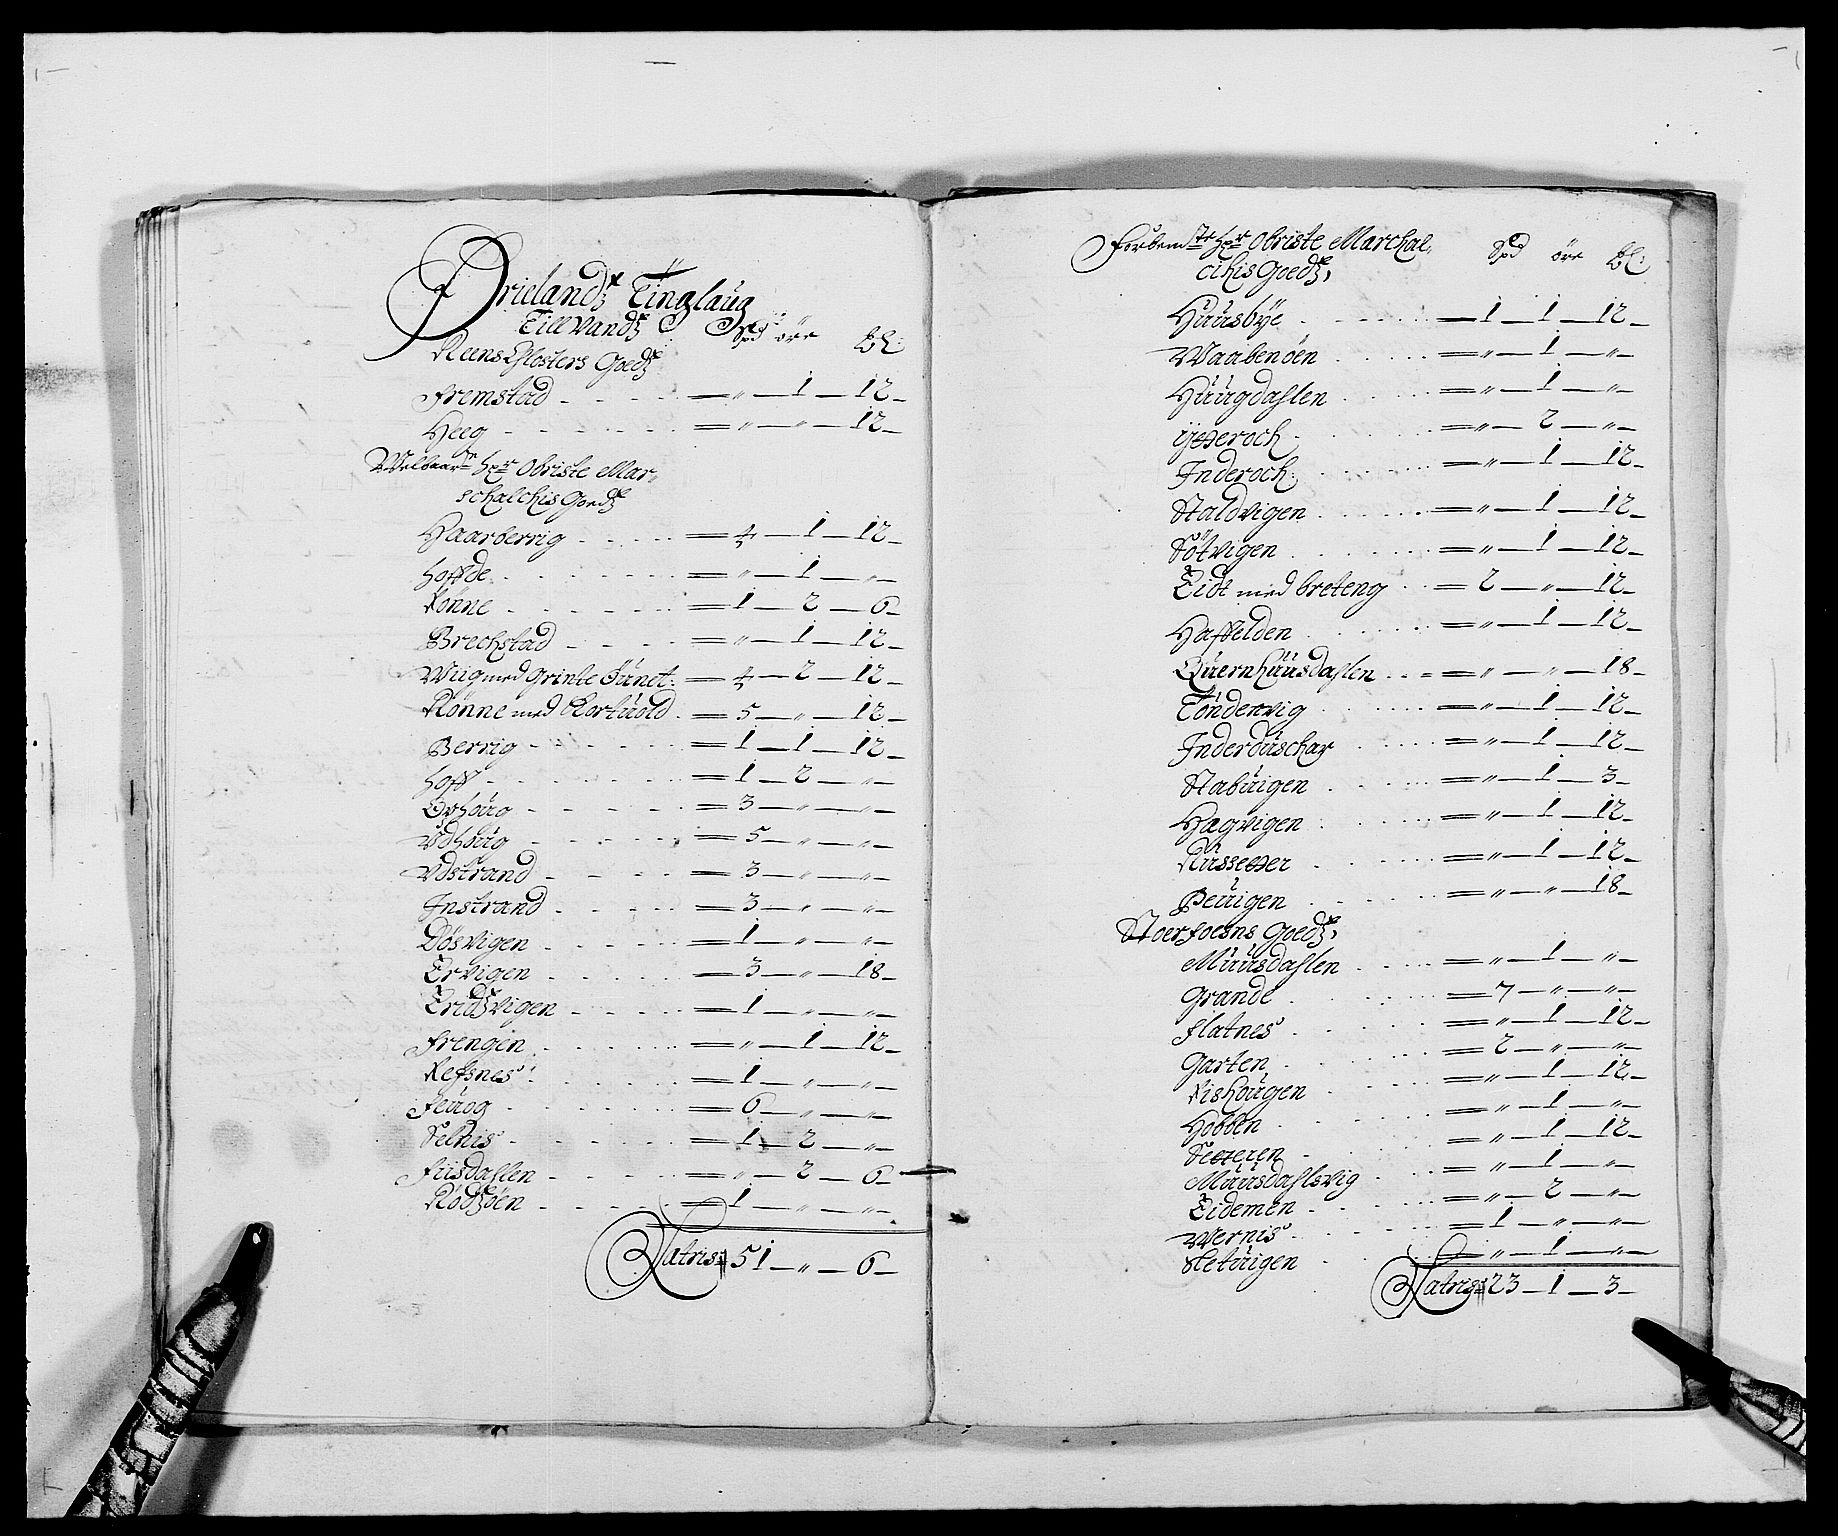 Ørielandz Tinglaug
Till Vandz Spd öre
Reens Closters Goedz
Fremstad = " 1 12
Heeg = " " 12
Welbaarne her Obriste Mar
schalchis Goedz
Haarberrig = 4 1 12
Hoffde = " 1 "
Rönne = 1 2 6
Brechstad = " 1 12
Wiig med Grinte Fünet = 4 2 12
Rönne med Kortuold = 5 " 12
Berrig = 1 1 12
Hoff = 1 2 "
Ophoug = 3 " "
Udhoug = 5 " "
Udstrand = 3 " "
Instrand = 3 " "
Dösvigen = 1 " "
Ervigen = 3 " 18
Eridzvigen = 1 " "
Frengen = " 1 12
Refsnes = 1 " "
Feüog = 6 " "
Selnis = 1 2 "
Fiisdahlen = " 2 6
Rödzöen = 1 " "
Latris 51 " 6
Forbemte her Obriste Marchal
chis Goedz Spd öre
Huusbÿe = 1 1 12
Waabenöen = " 1 "
Huugdahlen = " 1 "
ijtteroch = " 2 "
Inderoch = " 1 12
Staldvigen = " 1 12
Sötvigen = " 1 12
Eidt med breteng = 2 " 12
Haffelden = " 1 12
Quernhuusdahlen = " " 18
Töndervig = " 1 12
Inderduschar = " 1 12
Stabuigen = " 1 3
Hagvigen = " 1 12
Russetter = " 1 12
Peuigen = " " 18
Stoerfoesns Goedz
Muusdahlen = " 1 "
Grande = 7 " "
Flatnes = " 1 12
Garten = 2 " "
Rishougen = " 1 12
Hobben = " 1 "
Setteren = " 1 12
Muusdahlsvig = " 1 "
Eidemen = " 2 "
Wernis = 1 " "
Setuigen = " 1 "
Latris 23 1 3